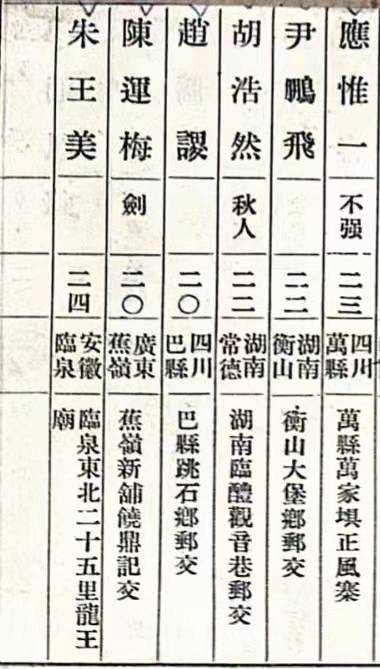 應惟一 不强 二三 四川萬縣 萬縣萬家埧正風寨
尹鵬飛 二二 湖南衡山 衡山大堡鄉郵交
胡浩然 秋人 二二 湖南常德 湖南臨醴觀音巷郵交
趙謖 二〇 四川巴縣 巴縣跳石鄉郵交
陳運梅 劍 二〇 廣東蕉嶺 蕉嶺新舖饒鼎記交
朱王美 二四 安徽臨泉 臨泉東北二十五里龍王廟